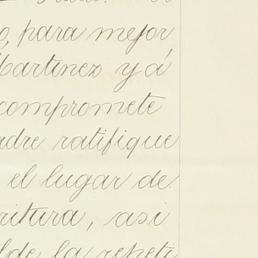 o, para mejor
Martinez y á
compromete
adre ratifique
el lugar de
ritura, asi
lde la repeti